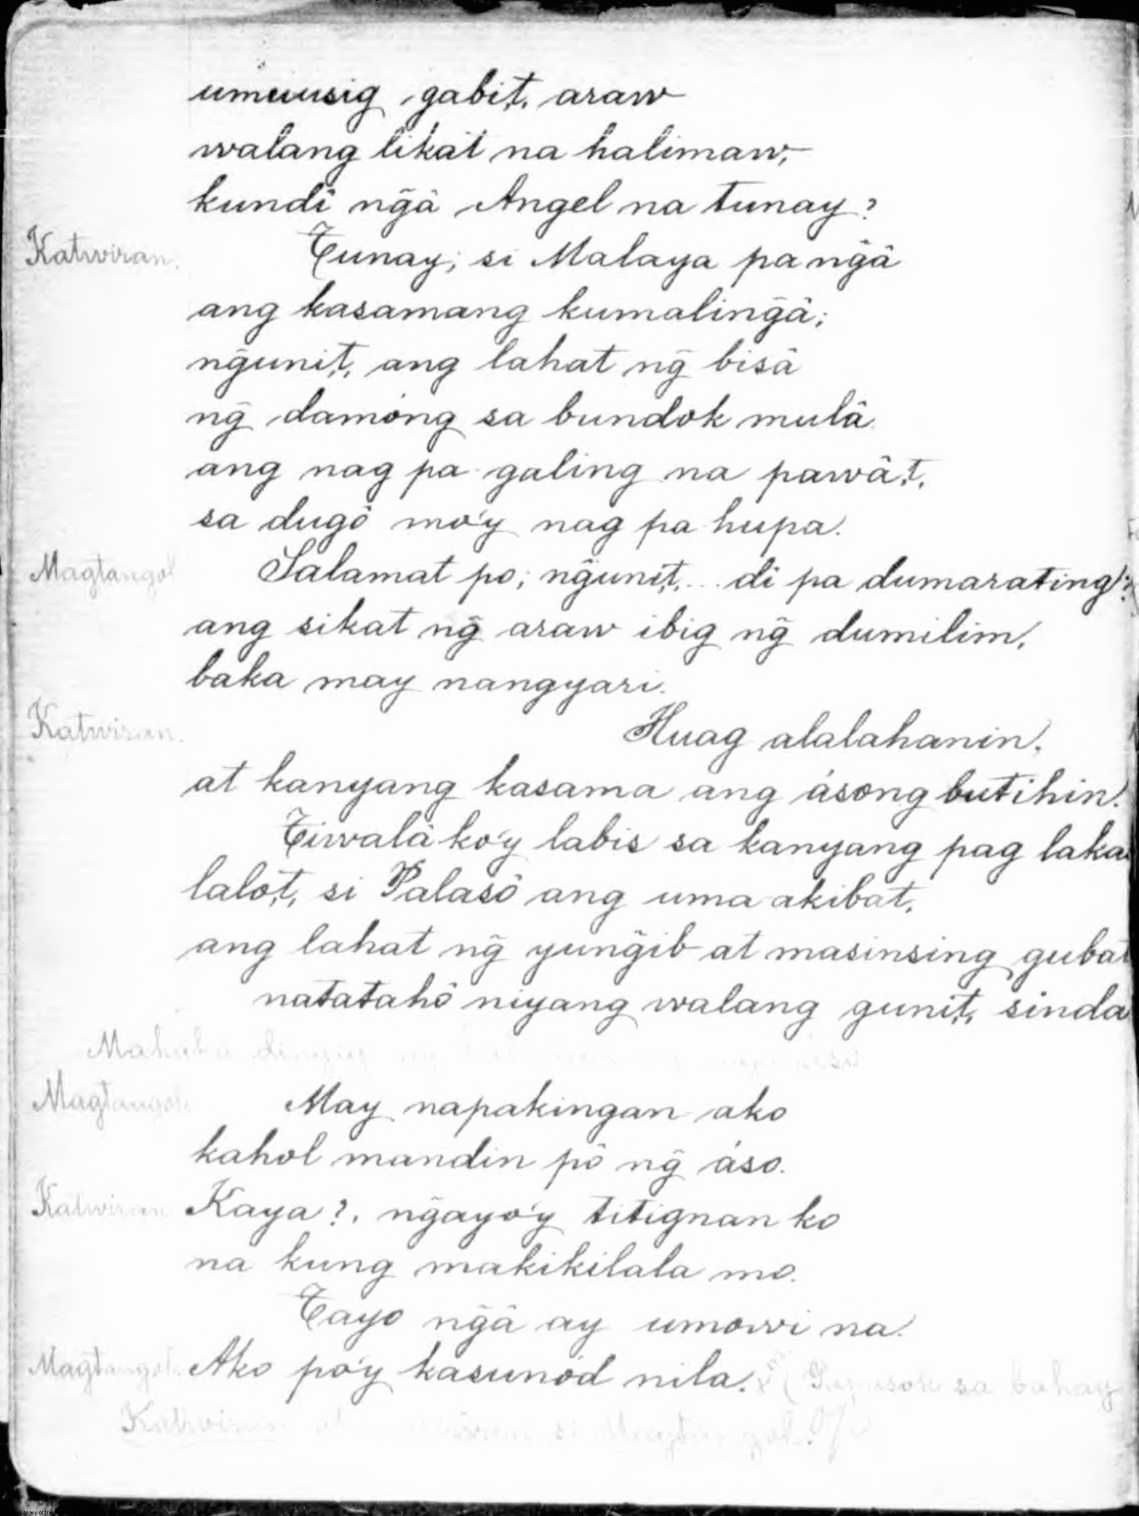 umuusig gabi,t, araw
walang likat na halimaw,
kundî ng̃â Angel na tunay?
Katwiran. Tunay; si Malaya pa ng̃â
ang kasamang kumaling̃â;
ng̃uni,t, ang lahat ng̃ bisâ
ng̃ damóng sa bundok mulâ
ang nag pa galing na pawâ,t,
sa dugô mo'y nag pa hupa.
Magtangol Salamat po; ng̃uni,t,... di pa dumarating!?
ang sikat ng̃ araw ibig ng̃ dumilim,
baka may nangyari.
Katwiran. Huag alalahanin,
at kanyang kasama ang ásong butihin.
Tiwalà ko'y labis sa kanyang pag laka
lalo,t, si Palasô ang uma akibat,
ang lahat ng̃ yung̃ib at masinsing gubat
natatahô niyang walang guni,t, sinda
Mahab
Magtangol. May napakingan ako
kahol mandin pô ng̃ áso.
Katwiran Kaya?, ng̃ayo'y titignan ko
na kung makikilala mo.
Tayo ng̃â ay umowi na.
Magtangol. Ako po'y kasunód nila. sa bahay
Katwiran si